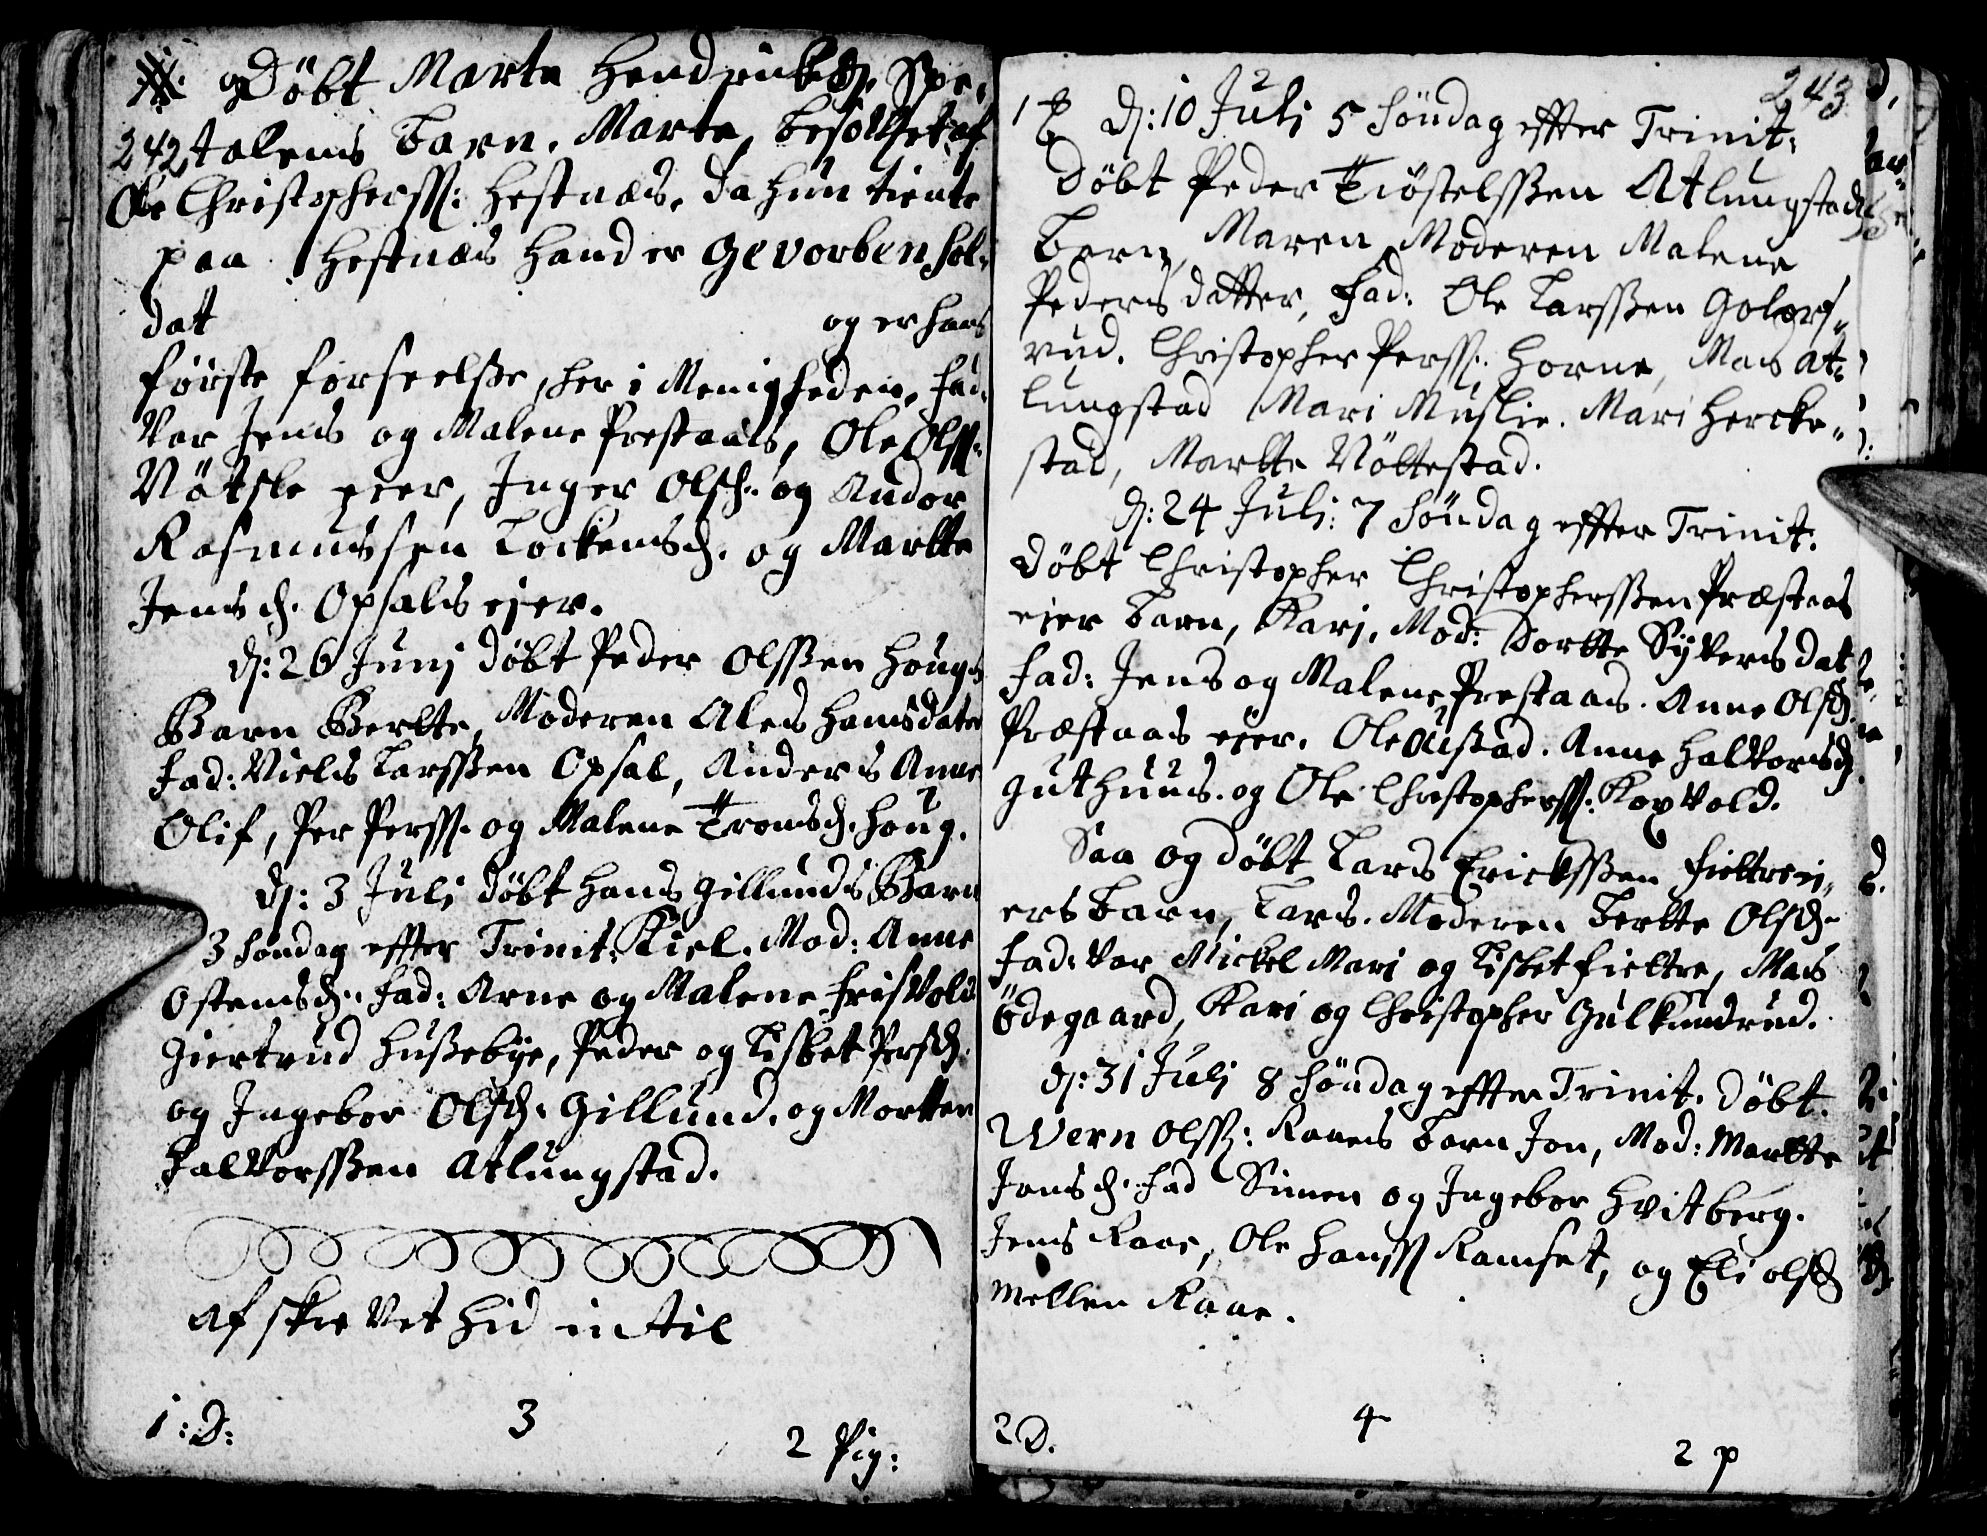 og Døbt Marte Hendrichsd. Spe,
242 talens Barn. Marte, besofvet af
Ole Christophersß: Hestnæs, da hun tiente
paa Hestnæs Hand er Gevorben sol„
dat og er hans
første forseelsse, her i Menigheden, fad.
Var Jens og Malene Prestaas, Ole Olsß.
Nøtsle eier, Inger Olsd: og Andor
Rasmussen Lockensd. og Marthe
Jensd. Opsals ejer.
d: 26 Junj døbt Peder Olsßen Hougs
Barn Berthe, Moderen Ales Hansdater
fad: Niels Larsßen Opsal, Anders Anne
Olif, Per Persß. og Malene Tromsd. Houg.
d: 3 Julj døbt Hans Gillunds Barn
3 søndag effter Trinit: Kiel. Mod: Anne
Ostensd. fad: Arne og Malene Frisvold
Giertrud Hußebye, Peder og Lisbet Persd.
og Ingebor Olsd. Gillund. og Morten
Halvorsßen Atlungstad.
Afskrevet hid intil
1:D: 3 2 Pig:
243
d: 10 Julj 5 Søndag effter Trinit:
Døbt Peder Tiøstelsßen Atlungstads
Barn, Maren, Moderen Malene
Pedersdatter, fad: Ole Larsßen Golors„
rud. Christopher Persß. Horne, Mas At„
lungstad Mari Muslie. Mari Hercke„
stad, Marthe Nøttestad.
d: 24 Julj: 7 Søndag effter Trinit.
Døbt Christopher Christophersßen Præstaas
eier Barn, Karj. Mod: Dorthe Syversdat
fad: Jens og Malene Prestaas. Anne Olsd.
Præstaas ejer. Ole Oustad. Anne Halvorsd.
Guthuus. og Ole Christophersß: Kopvold.
Saa og døbt Lars Ericksßen Fieltrei„
ers Barn, Lars. Moderen Berthe Olsd.
fad: Var Mickel Mari og Lisbet Fieltre, Mas
Ødegaard, Kari og Christopher Gulkundrud.
d: 31 Julj 8 Søndag effter Trinit. Døbt.
Wern Olsß: Raaes Barn Jon, Mod: Marthe
Jonsd. fad Simen og Ingebor Hvitberg.
Jens Raae, Ole Hansß Ramset, og Eli Olsd
Mellen Raae.
2 D. 4 2 p